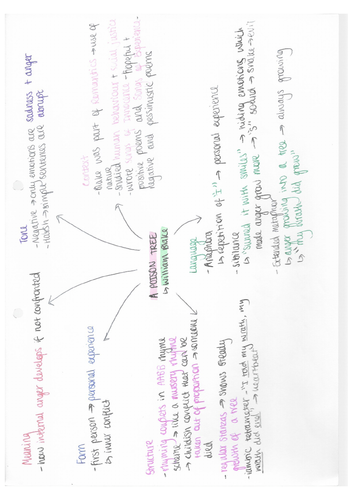 A POISON TREE
↳ William Blake
Meaning
- how internal anger develops if not confronted
Form
- first person → personal experience
↳ inner conflict
Structure
- rhyming couplets in AABB rhyme
scheme → like a nursery rhyme
↳ childish conflict that can be
taken out of proportion → someone
died
- regular stanzas → shows steady
growth of a tree
- iambic tetrameter - "I told my wrath, my
wrath did end" → heartbeat
Tone
- Negative → only emotions are sadness + anger
- Harsh → simple sentences are abrupt
Context
- Blake was part of romantics → use of
nature
- Studied human behaviour + social justice
- wrote songs of innocence - hopeful +
positive poems and songs of experience -
negative and pessimistic poems
Language
- Anaphora
↳ repetition of "I" → personal experience
- Sibilance
↳ "sunned it with smiles" → hiding emotions which
made anger grow more → "s" sound → snake → evil
- Extended metaphor
↳ anger growing into a tree → always growing
↳ "my wrath did grow"